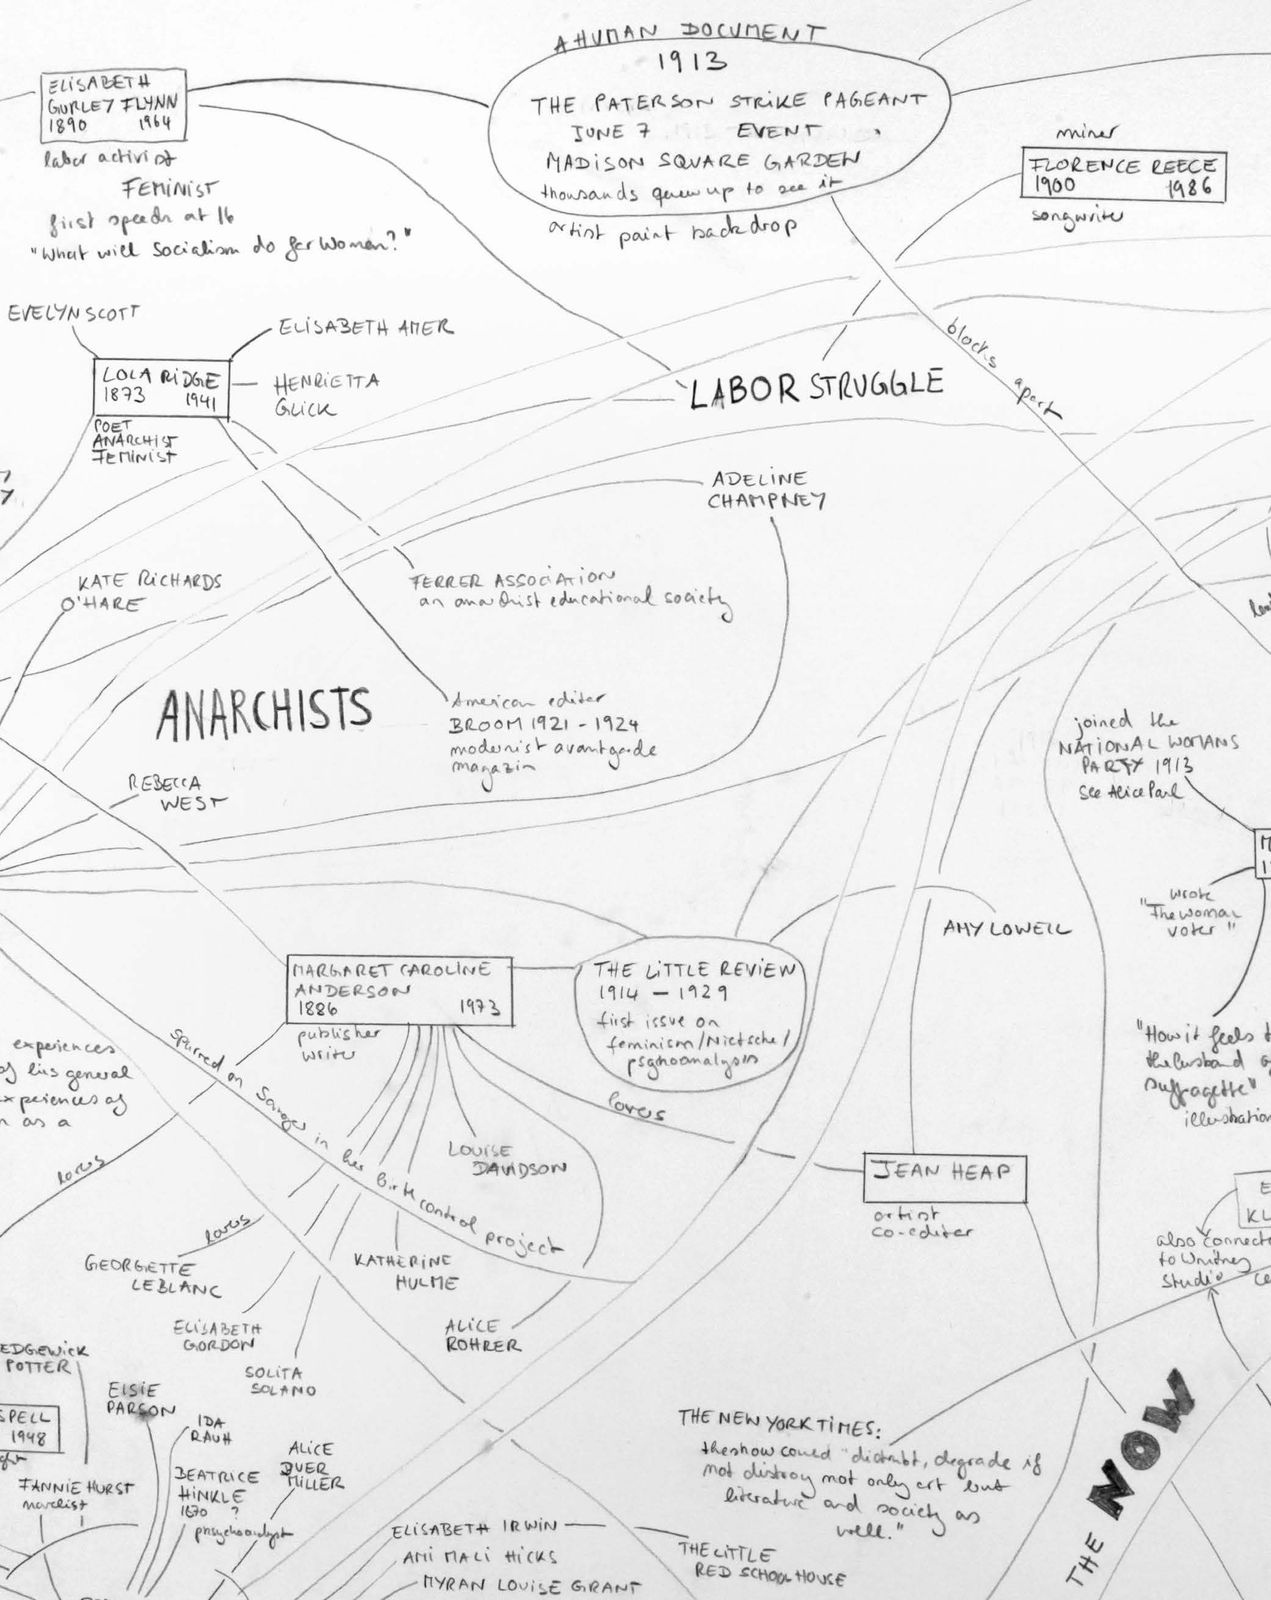 A HUMAN DOCUMENT
1913
THE PATERSON STRIKE PAGEANT
JUNE 7 EVENT
MADISON SQUARE GARDEN
thousands queue up to see it
artist paint backdrop
ELISABETH
GURLEY FLYNN
1890 1964
labor activist
FEMINIST
first speech at 16
"What will Socialism do for Women?"
miner
FLORENCE REECE
1900 1986
songwriter
EVELYN SCOTT
ELISABETH AMER
LOLA RIDGE
1873 1941
HENRIETTA
GLICK
POET
ANARCHIST
FEMINIST
blocks apart
LABOR STRUGGLE
ADELINE
CHAMPNEY
KATE RICHARDS
O'HARE
FERRER ASSOCIATION
an anarchist educational society
ANARCHISTS
American editor
BROOM 1921 - 1924
modernist avantgarde
magazin
REBECCA
WEST
joined the
NATIONAL WOMANS
PARTY 1913
see Alice Paul
wrote
"The woman
voter"
AMY LOWELL
MARGARET CAROLINE
ANDERSON
1886 1973
publisher
writer
THE LITTLE REVIEW
1914 — 1929
first issue on
feminism/Nietsche/
psychoanalysis
"How it feels
the husband
suffragette"
illustration
experiences
of his general
experiences of
as a
spurred on Sanger in her birth control project
lovers
lovers
lovers
LOUISE
DAVIDSON
JEAN HEAP
artist
co-editor
GEORGETTE
LEBLANC
KATHERINE
HULME
also connect
to Whitney
Studio
E
KL
ELISABETH
GORDON
ALICE
ROHRER
SOLITA
SOLANO
EDGEWICK
POTTER
ELSIE
PARSON
SPELL
1948
IDA
RAUH
ALICE
DUER
MILLER
FANNIE HURST
novelist
BEATRICE
HINKLE
1870 ?
phsychoanalyst
THE NEW YORK TIMES:
the show coued "disturbt, degrade if
not distroy not only art but
literature and society as
well."
THE NOW
ELISABETH IRWIN
AMI MALI HICKS
MYRAN LOUISE GRANT
THE LITTLE
RED SCHOOLHOUSE